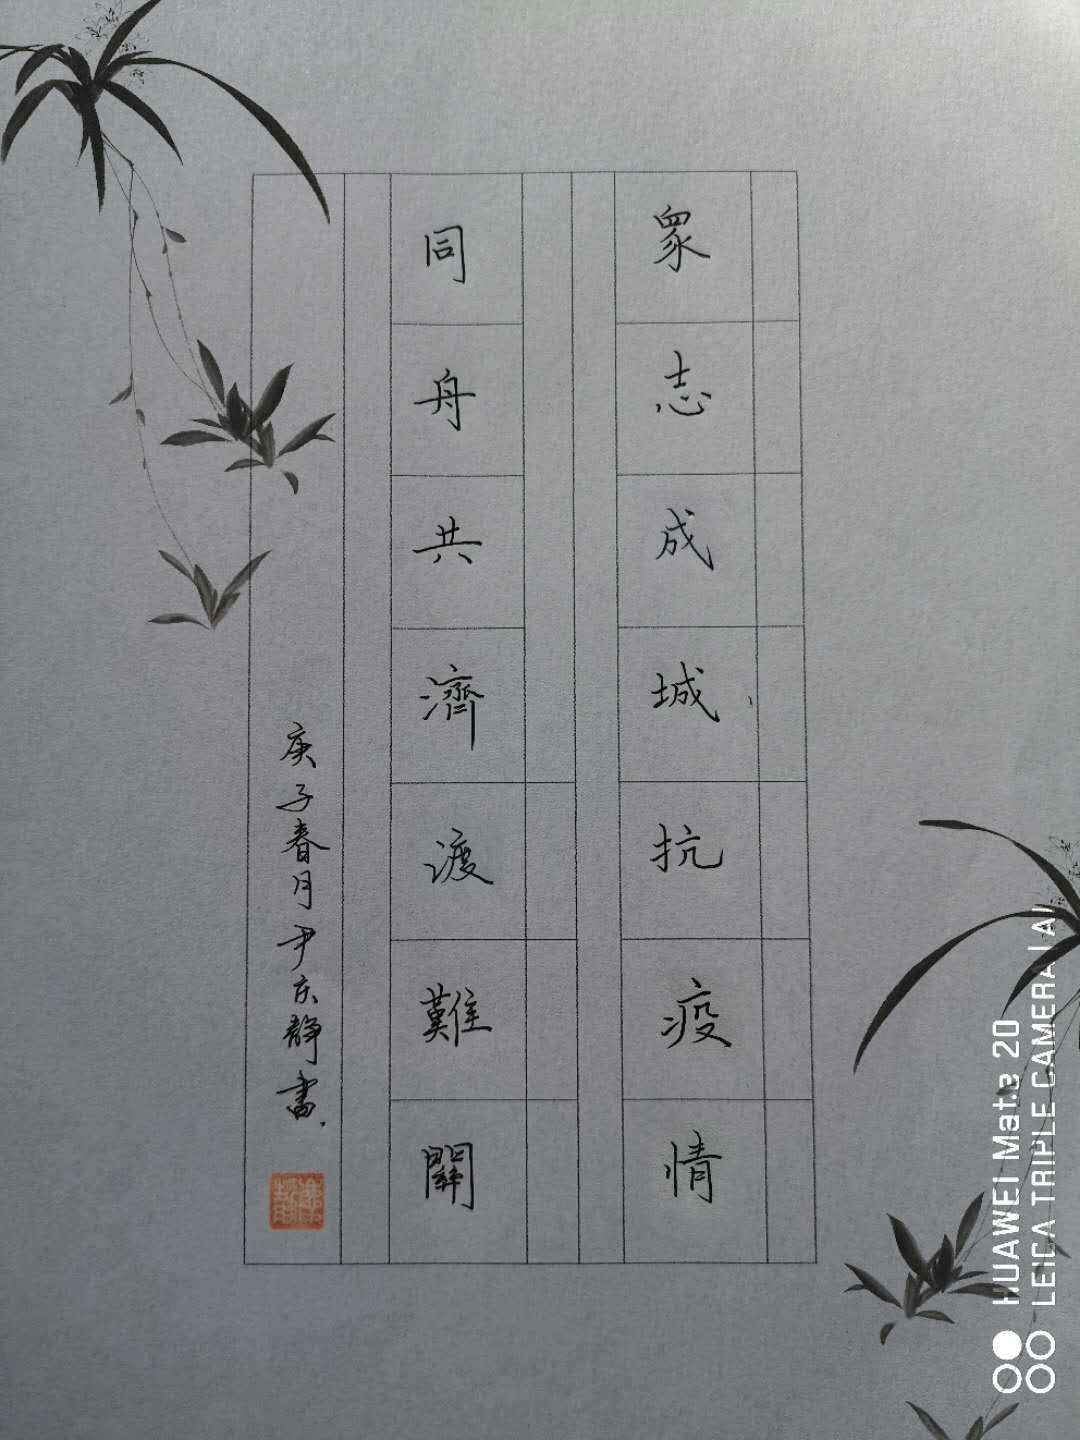 眾志成城抗疫情
同舟共濟渡難關
庚子春月尹庆静書
HUAWEI Mate 20
LEICA TRIPLE CAMERA | AI